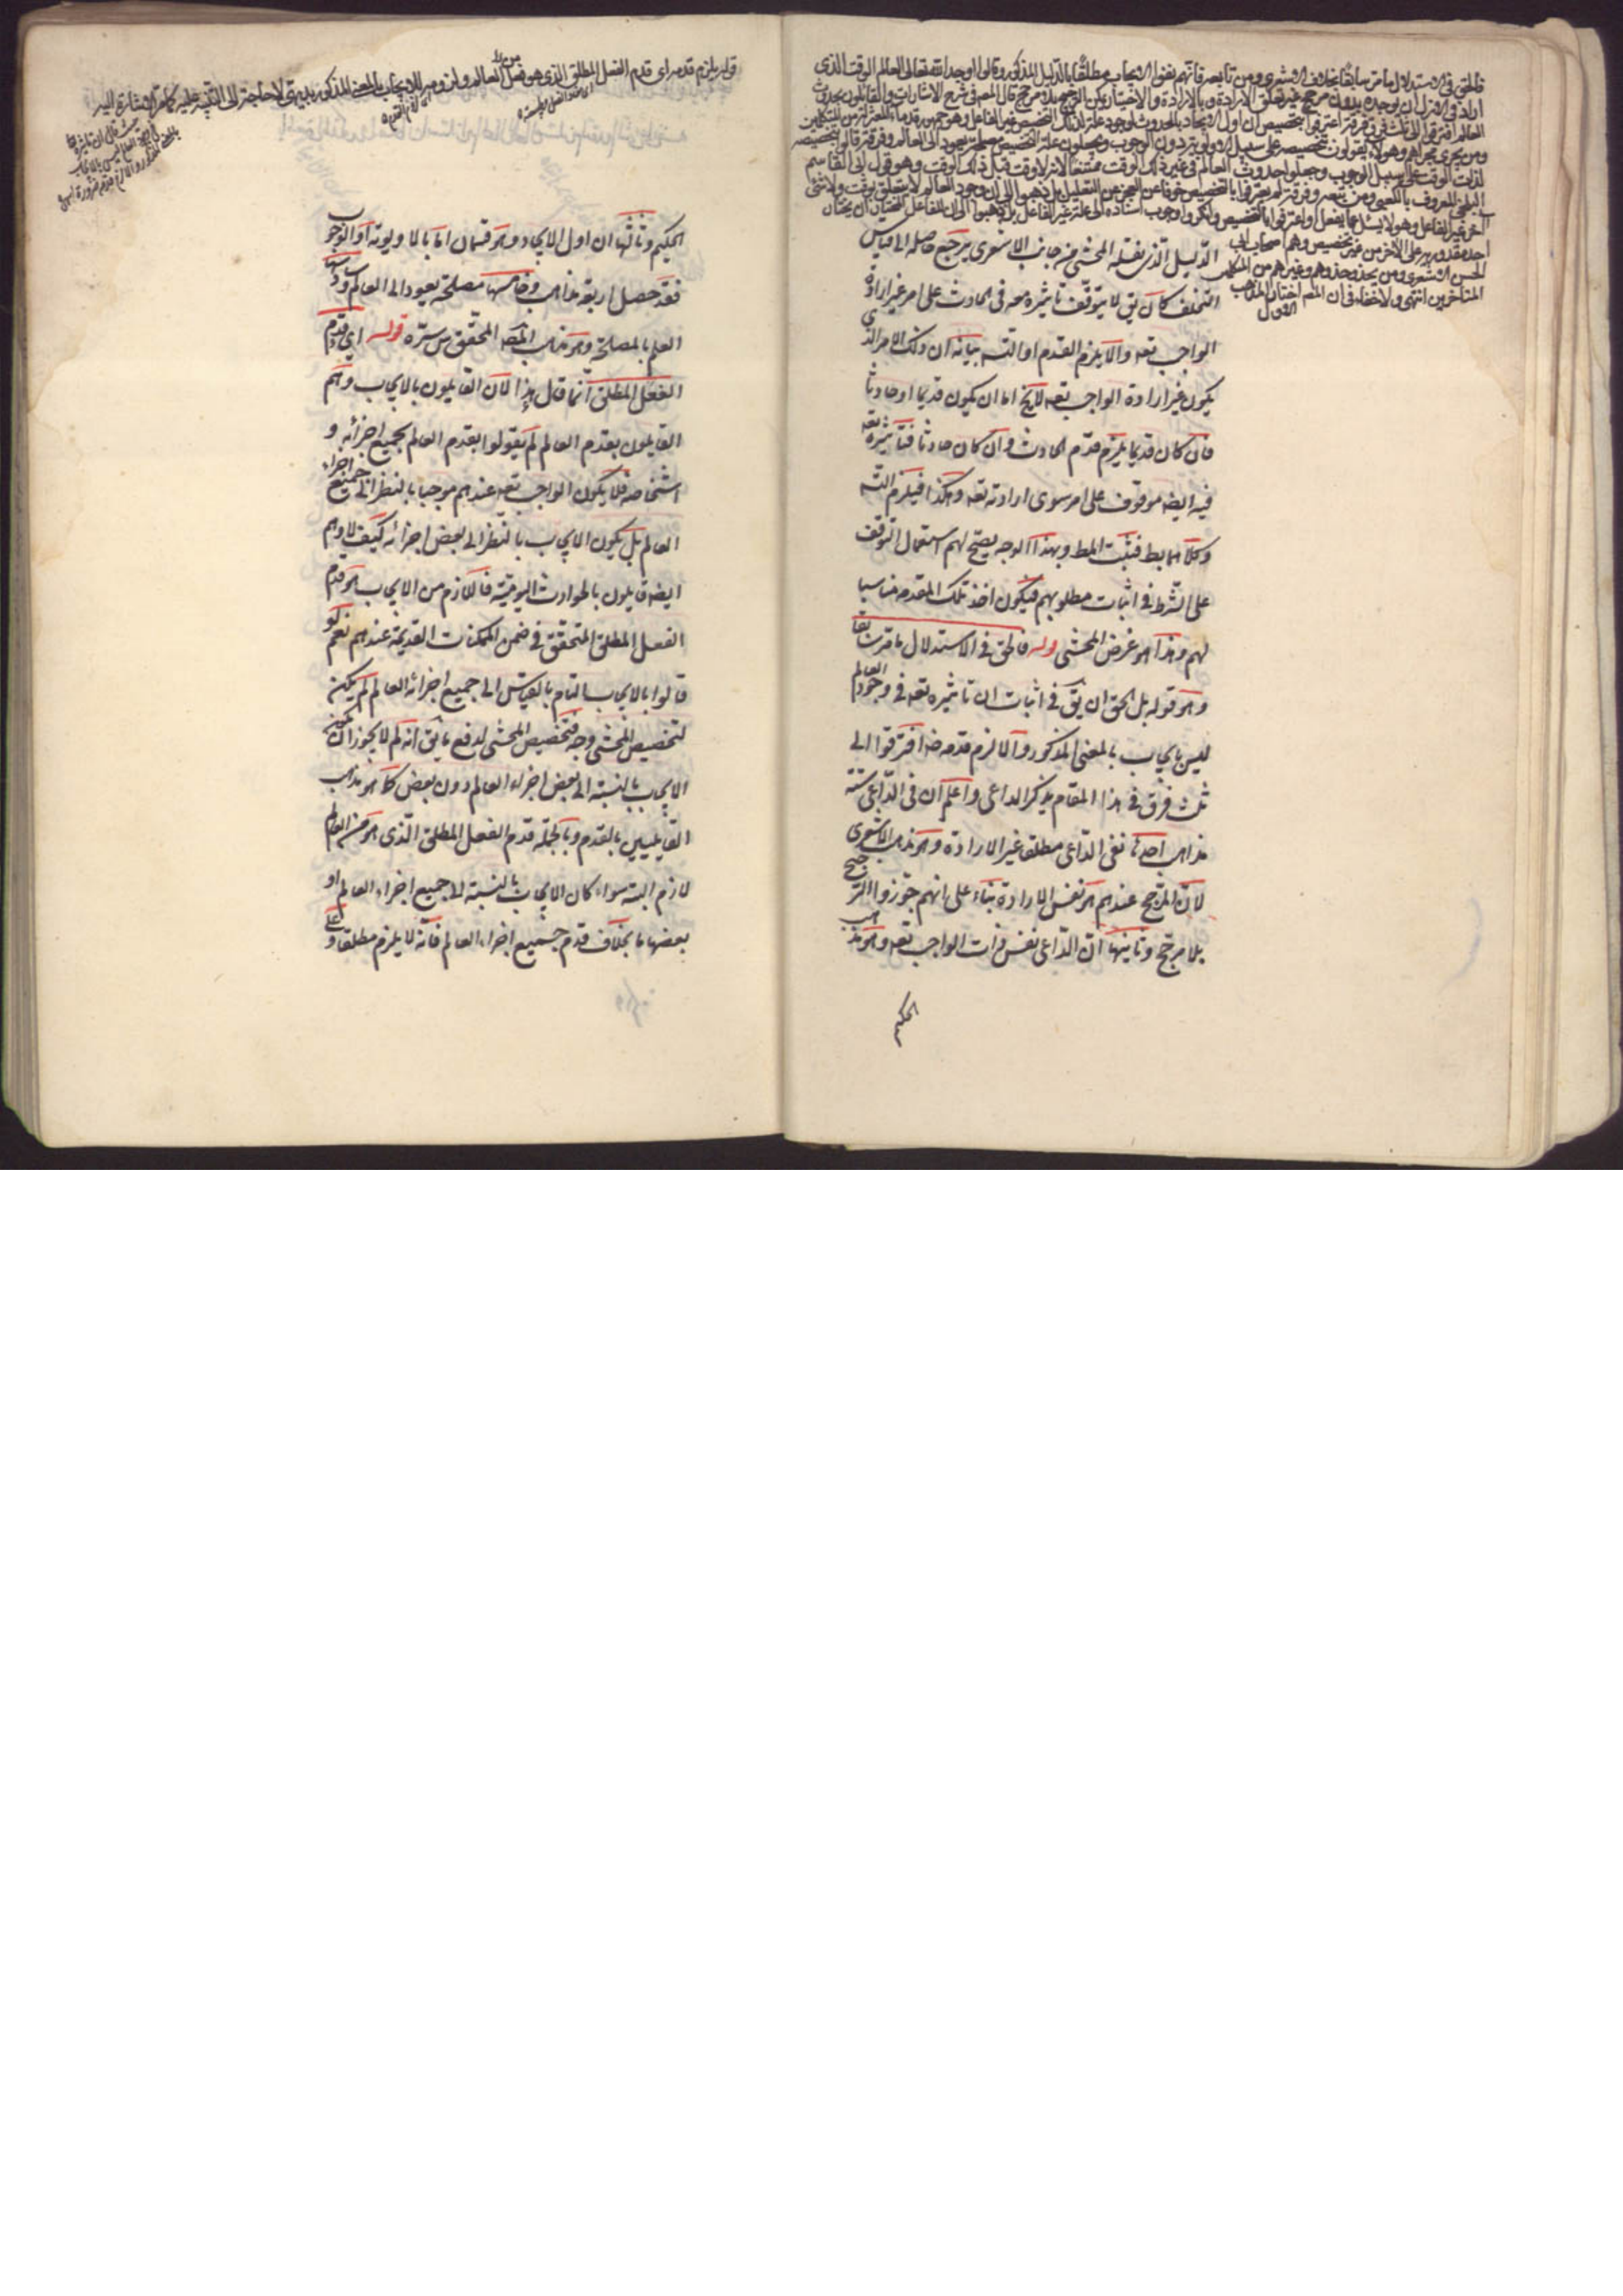 فالحق في الاستدلال ما مر سابقا بخلاف الاشعري ومن تابعه فانهم نفوا الايجاب مطلقا بالدليل المذكور وقالوا اوجد الله تعالى العالم الوقت الذي
اراد في الازل ان يوجده بدون مرجح غير تعلق الارادة وبالارادة والاختيار يمكن الترجيح بلا مرجح قال المصه في شرح الاشارات والقائلون بحدوث
العالم افترقوا الى ثلث فرق فرقة اعترفوا بتخصيص ان اول الايجاد بالحدوث لوجود علة لذلك التخصيص غير الفاعل وهو جمهور قدماء المعتزلة من المتكلمين
ومن يجري مجراهم وهولاء يقولون بتخصيصه على سبيل الاولوية دون الوجوب ويجعلون علة التخصيص مصلحة يعود الى العالم وفرقة قالوا بتخصيصه
لذلك الوقت على سبيل الوجوب وجعلوا حدوث العالم في غير ذلك الوقت ممتنعا لانه لا وقت قبل ذلك الوقت وهو قول ابى القاسم
البلخي المعروف بالكعبي ومن تبعه وفرقة لم يعترفوا بالتخصيص خوفا عن العجز عن التعليل بل ذهبوا الى ان وجود العالم لا يتعلق بوقت ولا بشئ
آخر غير الفاعل وهولا يسئل عما يفعل او اعترفوا بالتخصيص وانكروا وجوب استناده الى علة غير الفاعل بل ذهبوا الى ان الفاعل المختار ان يختار
احد مقدوريه على الآخر من غير تخصيص وهم اصحاب ابى
الحسن الاشعري ومن يحذو حذوهم وغيرهم من المتكلمين
المتأخرين انتهى ولا خفاء في ان المصه اختار المذهب
الاول
الدليل الذي نقله المحشي من جانب الاشعري يرجع حاصله الى قياس
التخلف كان يق لا يتوقف تاثيره تعه في الحادث على امر غير ارادة
الواجب تعه والا يلزم القدم او التسه بيانه ان ذلك الامر الذي
يكون غير ارادة الواجب تعه لايخ اما ان يكون قديما او حادثا
فان كان قديما يلزم قدم الحادث وان كان حادثا فتاثيره تعه
فيه ايضه موقوف على امر سوى ارادته تعه وهكذا فيلزم التسه
وكلاهما بط فثبت المط وبهذا الوجه يصح لهم استعمال التوقف
على الشرط في اثبات مطلوبهم فيكون اخذ تلك المقدمه مناسبا
لهم وهذا هو غرض المحشي قوله فالحق في الاستدلال ما مر سابقا
وهو قوله بل الحق ان يق في اثبات ان تاثيره تعه في وجود العالم
ليس بايجاب بالمعنى المذكور والا لزم قدمه ضه افترقوا الى
ثلث فرق في هذا المقام بذكر الداعي واعلم ان في الداعي ستة
مذاهب احدها نفي الداعي مطلقا غير الارادة وهو مذهب الاشعري
لان المرجح عندهم هو نفس الارادة بناء على انهم جوزوا الترجيح
بلا مرجح وثانيها ان الداعي نفس ذات الواجب تعه وهو مذهب
الحكيم
قوله يلزم قدمه اى قدم الفعل المطلق الذي هو فعل العالم ولزومه للايجاب بالمعنى المذكور بديهي لا حاجة الى التنبيه عليه كما مر الاشارة اليه
الحكيم وثالثها ان اول الايجاد وهو قسمان اما بالاولوية او الوجوب
فقد حصل اربعة مذاهب وخامسها مصلحة يعود الى العالم وسادسها
العلم بالمصلحة وهو مذهب المصه المحقق س سره قوله اي قدم
الفعل المطلق انما قال هذا لان القايلون بالايجاب وهم
القايلون بقدم العالم لم يقولوا بقدم العالم بجميع اجزائه و
اشخاصه فلا يكون الواجب تعه عندهم موجبا بالنظر الى جميع اجزاء
العالم بل يكون الايجاب بالنظر الى بعض اجزائه كيف لا وهم
ايضه قايلون بالحوادث اليوميّة فاللازم من الايجاب هو قدم
الفعل المطلق المتحقق في ضمن الممكنات القديمة عندهم نعم لو
قالوا بالايجاب التام بالقياس الى جميع اجزائه العالم لم يكن
لتخصيص المحشي وجه فتخصيص المحشي لدفع ما يق انه لم لا يجوز ان يكون
الايجاب بالنسبة الى بعض اجزاء العالم دون بعض كما هو مذهب
القايليين بالقدم وبالجملة قدم الفعل المطلق الذي هو من العالم
لازم البته سواء كان الايجاب بالنسبة الى جميع اجزاء العالم او
بعضها بخلاف قدم جميع اجزاء العالم فانه لا يلزم مطلقا و